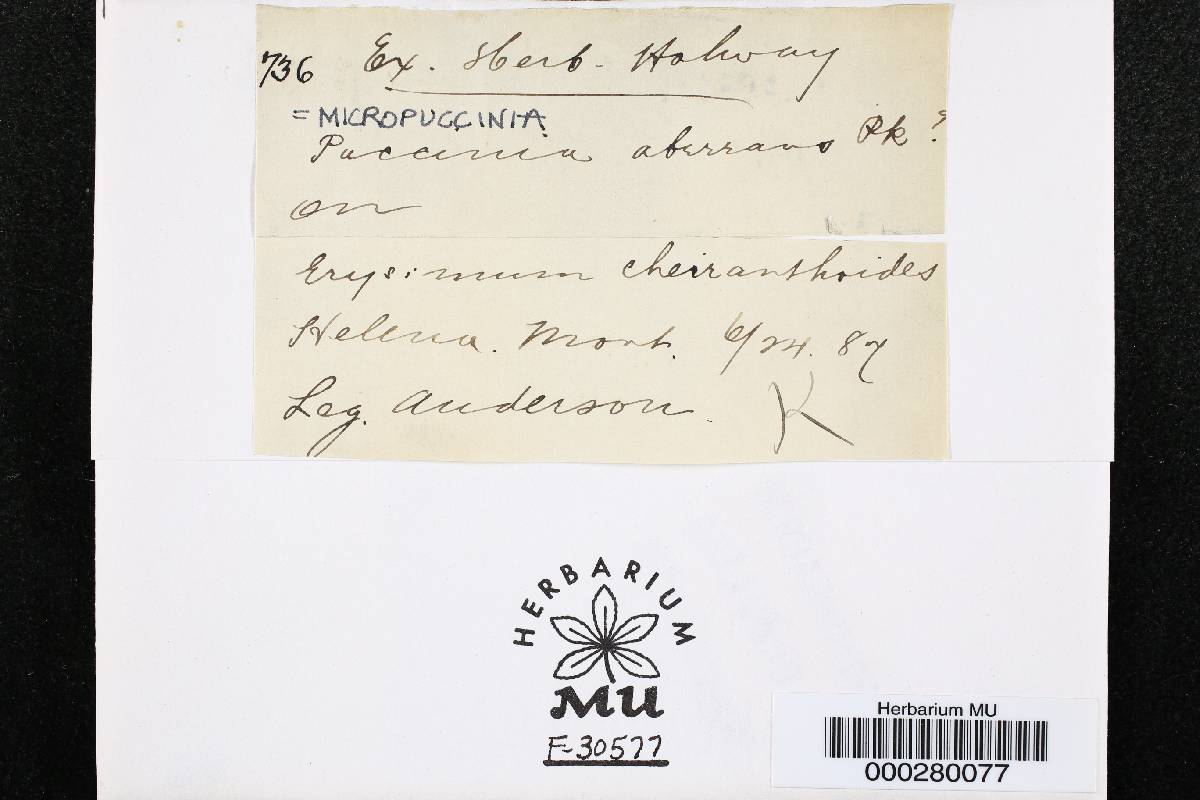 736 Ex. Herb. Holway
= MICROPUCCINIA
Puccinia aberrans Pk ?
on
Erysimum cheiranthoides
Helena. Mont. 6/24. 87
Leg. Anderson. K
HERBARIUM
MU
F-30577
Herbarium MU
000280077